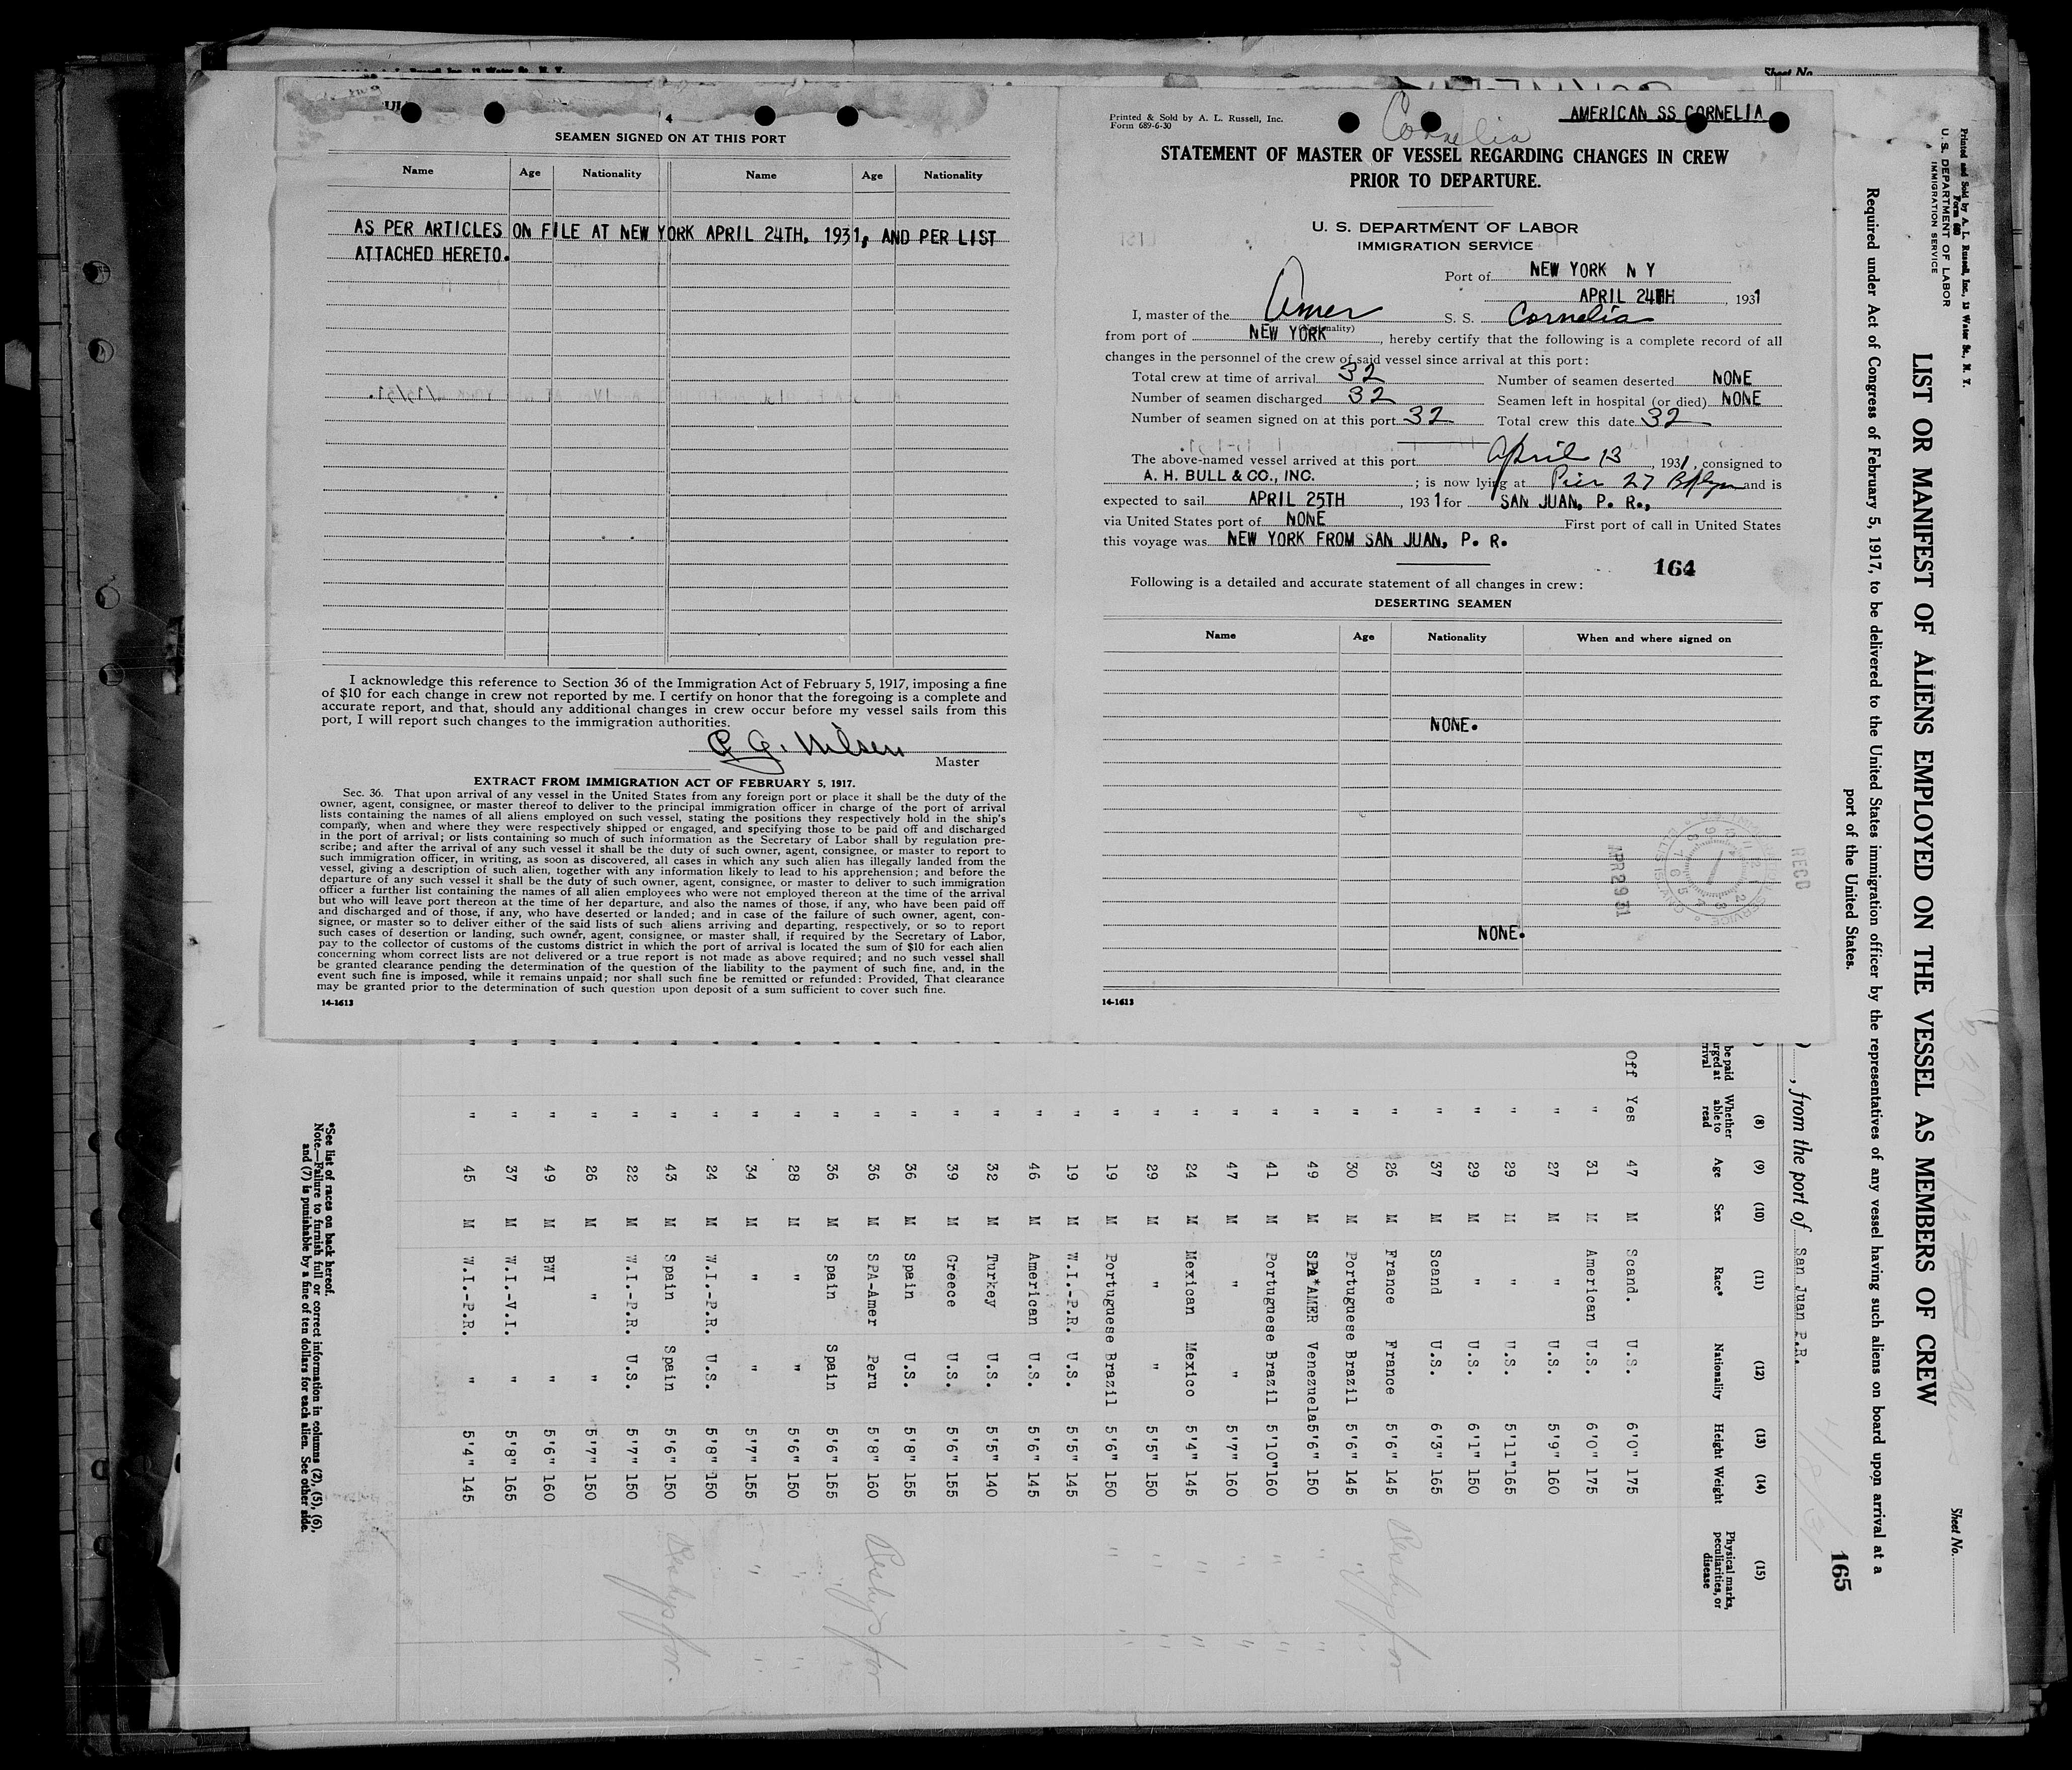 4
SEAMEN SIGNED ON AT THIS PORT
Name Age Nationality Name Age Nationality
AS PER ARTICLES ON FILE AT NEW YORK APRIL 24TH, 1931, AND PER LIST
ATTACHED HERETO.
I acknowledge this reference to Section 36 of the Immigration Act of February 5, 1917, imposing a fine
of $10 for each change in crew not reported by me. I certify on honor that the foregoing is a complete and
accurate report, and that, should any additional changes in crew occur before my vessel sails from this
port, I will report such changes to the immigration authorities.
Master
EXTRACT FROM IMMIGRATION ACT OF FEBRUARY 5, 1917.
Sec. 36. That upon arrival of any vessel in the United States from any foreign port or place it shall be the duty of the
owner, agent, consignee, or master thereof to deliver to the principal immigration officer in charge of the port of arrival
lists containing the names of all aliens employed on such vessel, stating the positions they respectively hold in the ship's
company, when and where they were respectively shipped or engaged, and specifying those to be paid off and discharged
in the port of arrival; or lists containing so much of such information as the Secretary of Labor shall by regulation pre-
scribe; and after the arrival of any such vessel it shall be the duty of such owner, agent, consignee, or master to report to
such immigration officer, in writing, as soon as discovered, all cases in which any such alien has illegally landed from the
vessel, giving a description of such alien, together with any information likely to lead to his apprehension; and before the
departure of any such vessel it shall be the duty of such owner, agent, consignee, or master to deliver to such immigration
officer a further list containing the names of all alien employees who were not employed thereon at the time of the arrival
but who will leave port thereon at the time of her departure, and also the names of those, if any, who have been paid off
and discharged and of those, if any, who have deserted or landed; and in case of the failure of such owner, agent, con-
signee, or master so to deliver either of the said lists of such aliens arriving and departing, respectively, or so to report
such cases of desertion or landing, such owner, agent, consignee, or master shall, if required by the Secretary of Labor,
pay to the collector of customs of the customs district in which the port of arrival is located the sum of $10 for each alien
concerning whom correct lists are not delivered or a true report is not made as above required; and no such vessel shall
be granted clearance pending the determination of the question of the liability to the payment of such fine, and, in the
event such fine is imposed, while it remains unpaid; nor shall such fine be remitted or refunded: Provided, That clearance
may be granted prior to the determination of such question upon deposit of a sum sufficient to cover such fine.
14-1613
Printed & Sold by A. L. Russell, Inc.
Form 689-6-30
Cornelia
AMERICAN SS CORNELIA
STATEMENT OF MASTER OF VESSEL REGARDING CHANGES IN CREW
PRIOR TO DEPARTURE.
U. S. DEPARTMENT OF LABOR
IMMIGRATION SERVICE
Port of NEW YORK N Y
APRIL 24TH, 1931
I, master of the Amer S. S. Cornelia
(Nationality)
from port of NEW YORK, hereby certify that the following is a complete record of all
changes in the personnel of the crew of said vessel since arrival at this port:
Total crew at time of arrival 32 Number of seamen deserted NONE
Number of seamen discharged 32 Seamen left in hospital (or died) NONE
Number of seamen signed on at this port 32 Total crew this date 32
The above-named vessel arrived at this port April 13, 1931, consigned to
A. H. BULL & CO., INC.; is now lying at Pier 27 Bklyn and is
expected to sail APRIL 25TH, 1931 for SAN JUAN, P. R.,
via United States port of NONE First port of call in United States
this voyage was NEW YORK FROM SAN JUAN, P. R.
164
Following is a detailed and accurate statement of all changes in crew:
DESERTING SEAMEN
Name Age Nationality When and where signed on
NONE.
NONE.
APR 29 31
RECD
14-1613
Sheet No.
Printed and Sold by A. L. Russell, Inc., 13 Water St., N. Y.
Form 680
U. S. DEPARTMENT OF LABOR
IMMIGRATION SERVICE
Sheet No.
LIST OR MANIFEST OF ALIENS EMPLOYED ON THE VESSEL AS MEMBERS OF CREW
Required under Act of Congress of February 5, 1917, to be delivered to the United States immigration officer by the representatives of any vessel having such aliens on board upon arrival at a
port of the United States.
165
, from the port of San Juan P.R.
(8) (9) (10) (11) (12) (13) (14) (15)
be paid
Whether able to read Age Sex Race* Nationality Height Weight Physical marks, peculiarities, or disease
Off Yes 47 M Scand. U.S. 6'0" 175
" 31 M American U.S. 6'0" 175
" 27 M " U.S. 5'9" 160
" 29 M " U.S. 5'11" 165
" 29 M " U.S. 6'1" 150
" 37 M Scand U.S. 6'3" 165
" 26 M France France 5'6" 145
" 30 M Portuguese Brazil 5'6" 145
" 49 M SPA*AMER Venezuela 5'6" 150
" 41 M Portuguese Brazil 5'10" 160
" 47 M " " 5'7" 160
" 24 M Mexican Mexico 5'4" 145
" 29 M " " 5'5" 150
" 19 M Portuguese Brazil 5'6" 150
" 19 M W.I.-P.R. U.S. 5'5" 145
" 46 M American U.S. 5'6" 145
" 32 M Turkey U.S. 5'5" 140
" 39 M Greece U.S. 5'6" 155
" 36 M Spain U.S. 5'8" 155
" 36 M SPA-Amer Peru 5'8" 160
" 36 M Spain Spain 5'6" 155
" 28 M " " 5'6" 150
" 34 M " " 5'7" 155
" 24 M W.I.-P.R. U.S. 5'8" 150
" 43 M Spain Spain 5'6" 150
" 22 M W.I.-P.R. U.S. 5'7" 150
" 26 M " " 5'7" 150
" 49 M BWI " 5'6" 160
" 37 M W.I.-V.I. " 5'8" 165
" 45 M W.I.-P.R. " 5'4" 145
*See list of races on back hereof.
Note.—Failure to furnish full or correct information in columns (2), (5), (6),
and (7) is punishable by a fine of ten dollars for each alien. See other side.